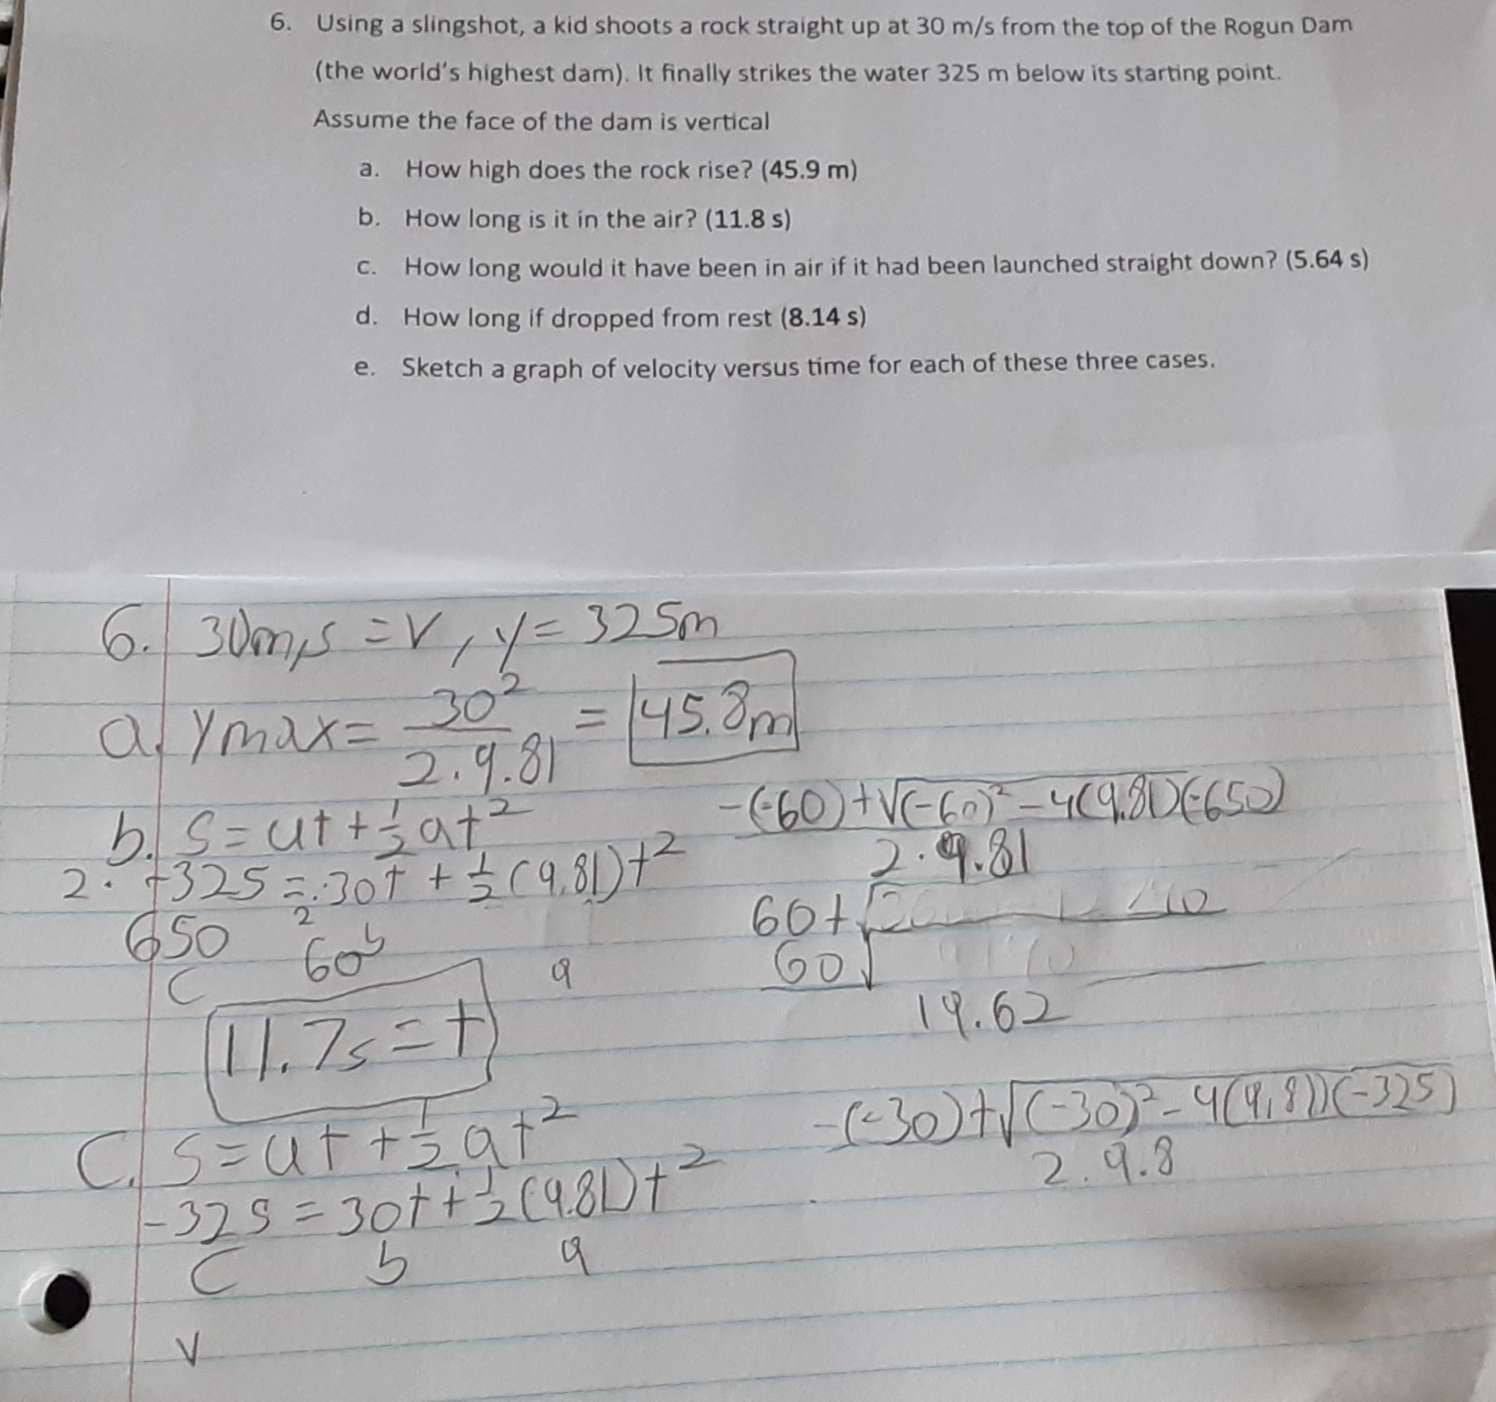 6. Using a slingshot, a kid shoots a rock straight up at 30 m/s from the top of the Rogun Dam
(the world's highest dam). It finally strikes the water 325 m below its starting point.
Assume the face of the dam is vertical
a. How high does the rock rise? (45.9 m)
b. How long is it in the air? (11.8 s)
c. How long would it have been in air if it had been launched straight down? (5.64 s)
d. How long if dropped from rest (8.14 s)
e. Sketch a graph of velocity versus time for each of these three cases.
6. 30m/s = V, y = 325m
a. ymax = 30² / 2.9.81 = 45.8m
b. s = ut + ½at²
2. +325 = -30t + ½(9.81)t²
650 2 60 b
c a
11.7s = t
-(-60)+√(-60)²-4(9.81)(-650)
2.9.81
60+√
60√
19.62
C. s = ut + ½at²
-325 = 30t + ½(9.81)t²
c b a
-(-30)+√(-30)²-4(9.8))(-325)
2.9.8
V